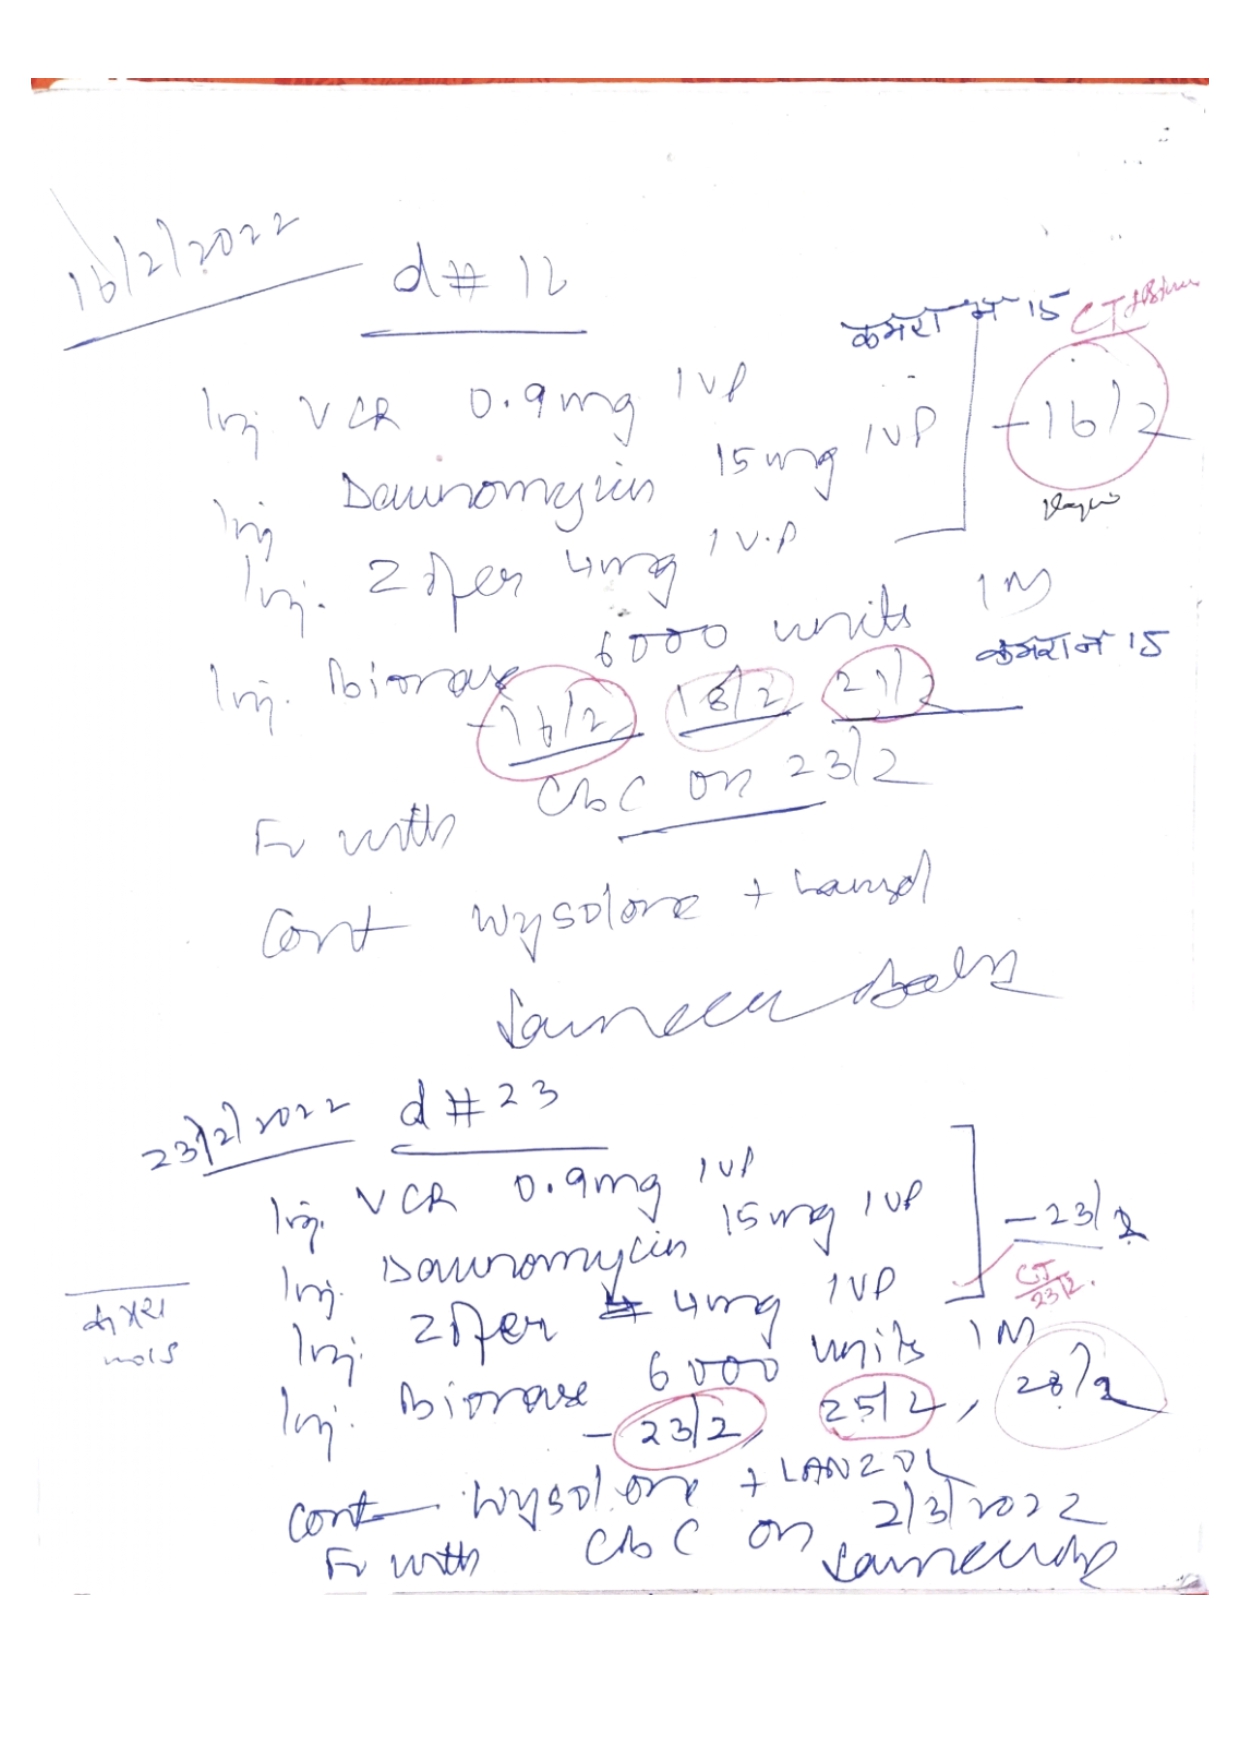 16/2/2022
d# 12
कमरा नं 15 CT
Inj. VCR 0.9mg IVP
Inj Daunomycin 15mg IVP - 16/2
Inj. Zofer 4mg I V.P
Inj. Bionase 6000 units IM
कमरा नं 15
- 16/2 18/2 21/2
Fu with CBC on 23/2
Cont Wysolone + Lanzol
23/2/2022 d # 23
Inj. VCR 0.9mg IVP
Inj. Daunomycin 15mg IVP - 23/2
CT 23/2.
Inj. Zofer 4mg IVP
कमरा
no 15
Inj. Bionase 6000 units IM
- 23/2, 25/2, 28/2
Cont Wysolone + LANZOL
Fu with CBC on 2/3/2022